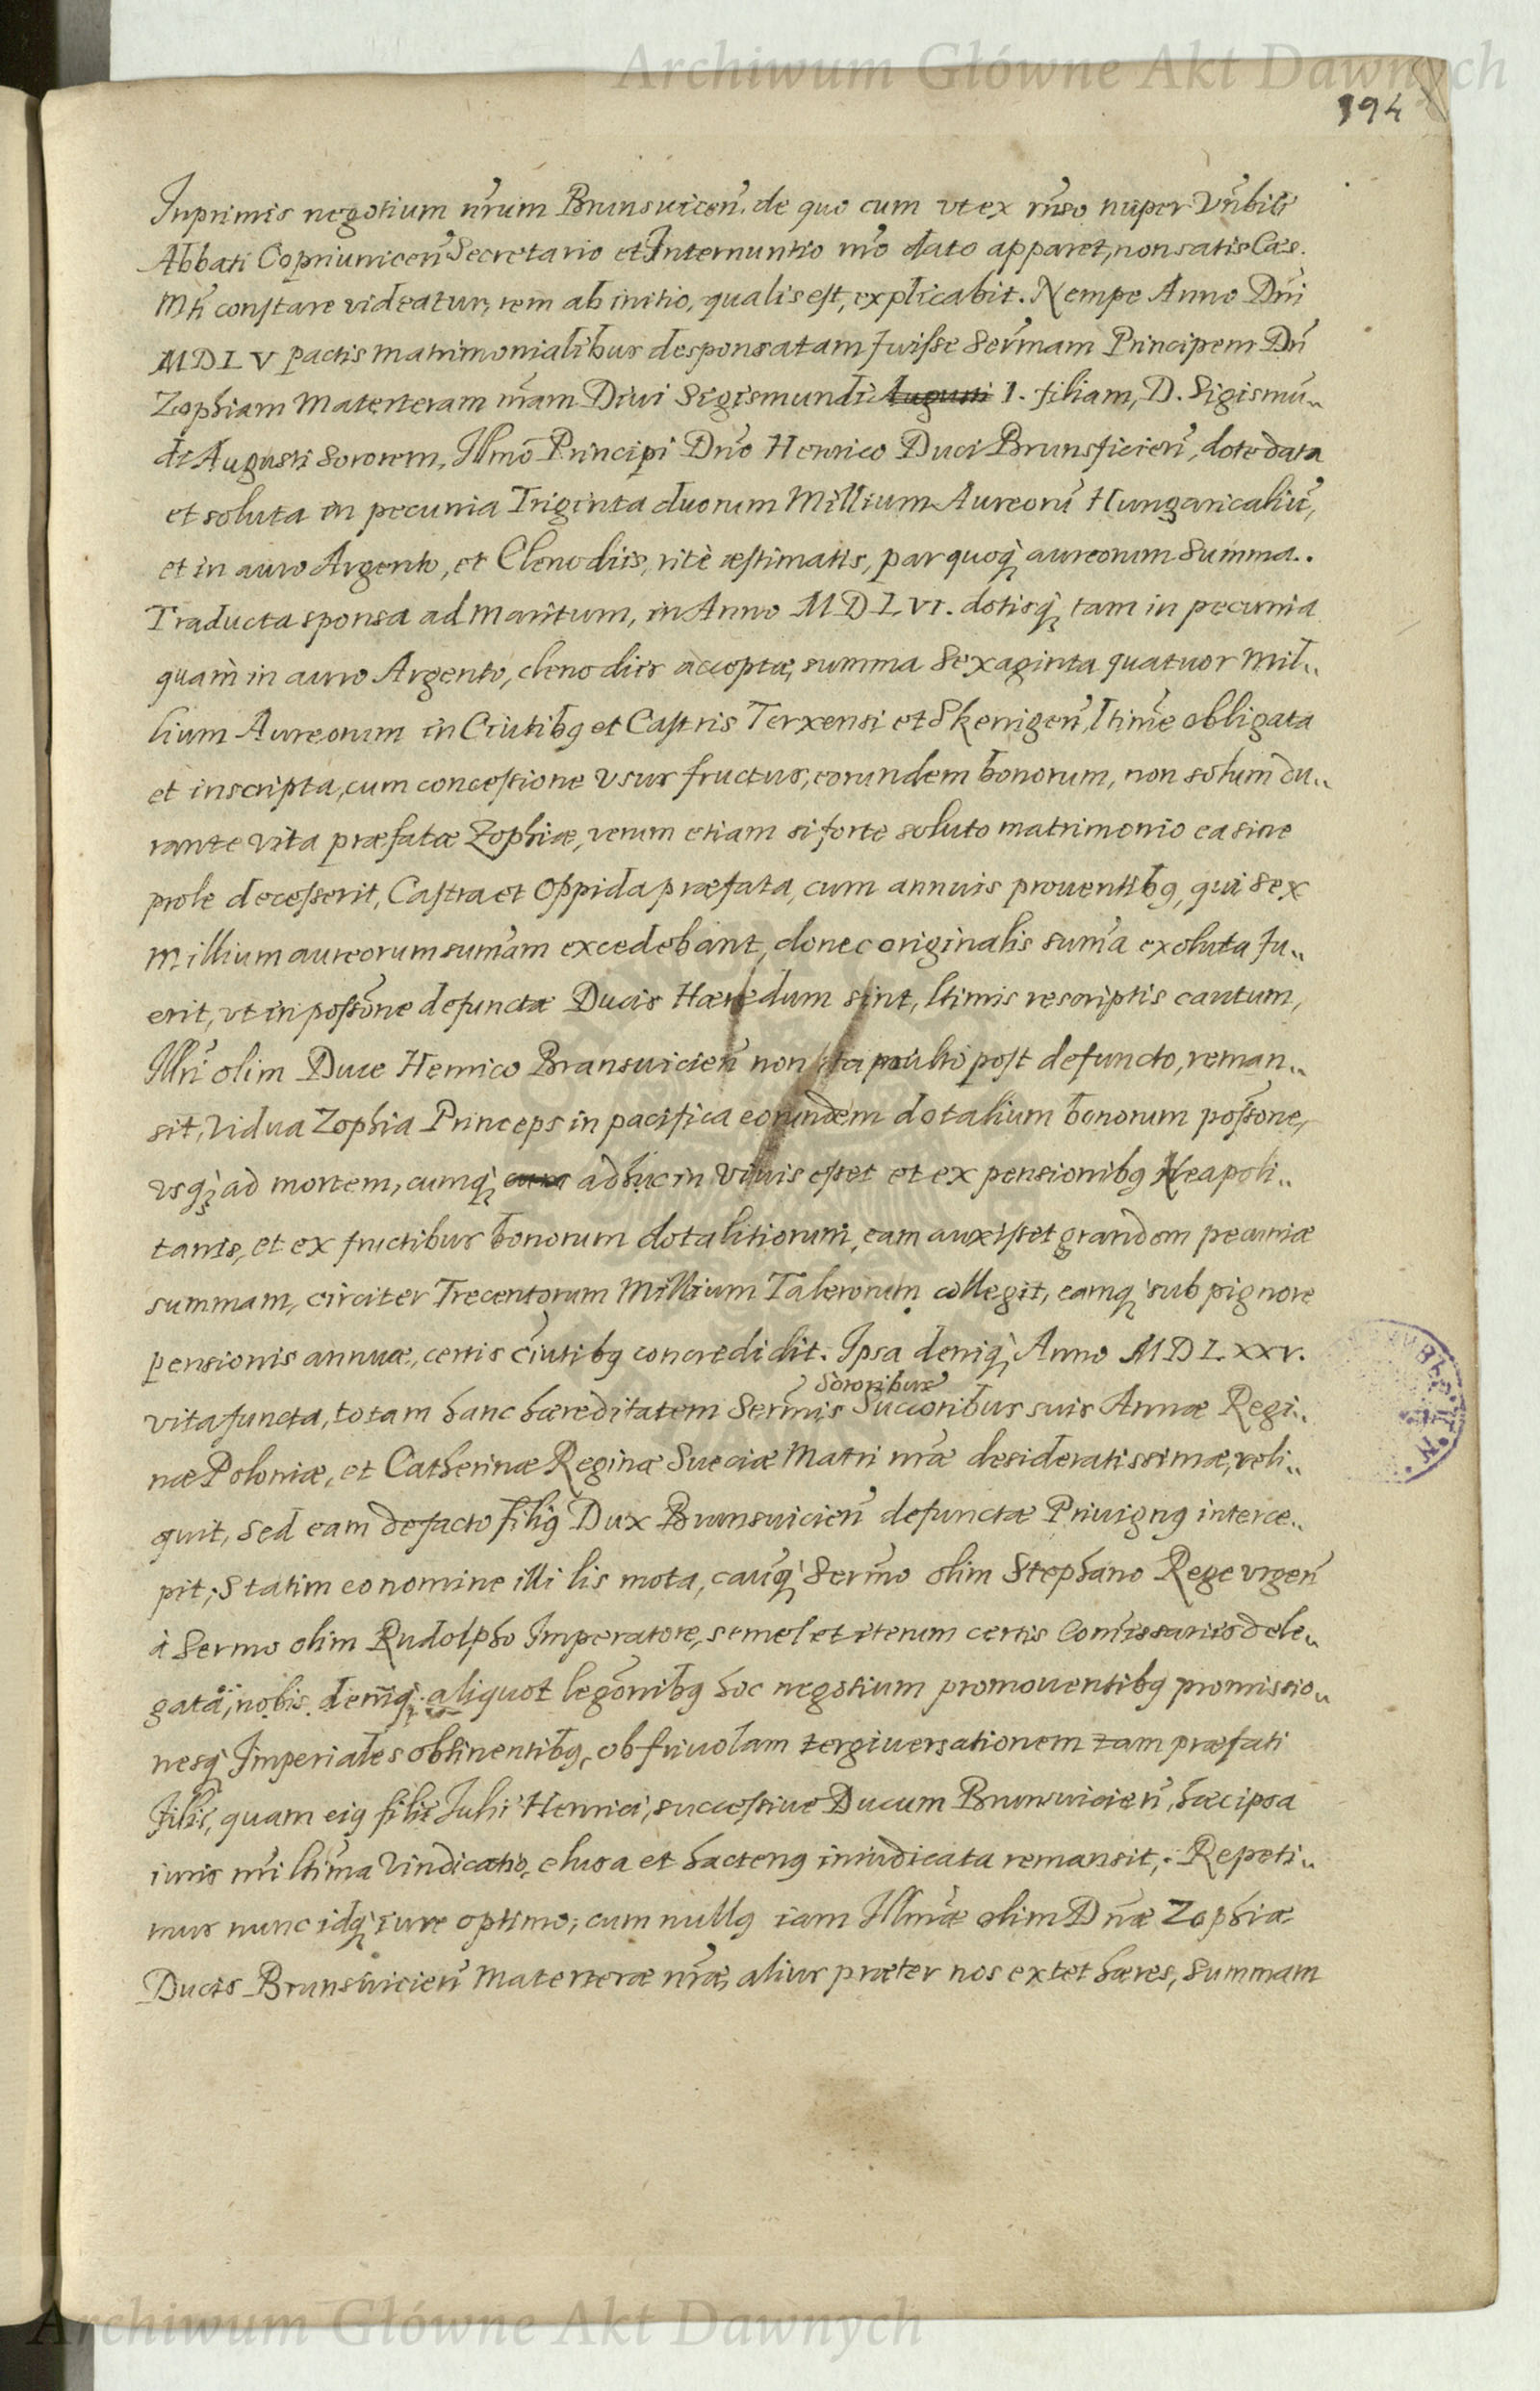 Archiwum Główne Akt Dawnych
394
Inprimis negotium nr̃um Brunsuiceñ. de quo cum vt ex rñso nuper Vñbili
Abbati Copriuniceñ Secretario et Internuntio nr̃o dato apparet, non satis Cæs.
Mti constare videatur, rem ab initio, qualis est, explicabit. Nempe Anno Dñi
MDLV pactis matrimonialibus desponsatam fuisse Serm̃am Principem Dñ
Zophiam Materteram nr̃am Diui Sigismundi Augusti I. filiam, D. Sigismũ„
di Augusti Sororem, Illmo Principi Dño Henrico Duci Brunsficieñ, dote data
et soluta in pecunia Triginta duorum Millium Aureorũ Hungaricaliũ,
et in auro Argento, et Clenodiis, ritè æstimatis, par quoq; aureorum Summa..
Traducta sponsa ad Maritum, in Anno MDLVI. dotisq; tam in pecunia
quàm in auro Argento, clenodiis acceptæ, summa Sexaginta quatuor Mil„
lium Aureorum in Ciuitibq et Castris Terxensi et Skenigeñ, ltim̃e obligata
et inscripta, cum concessione vsus fructus, eorundem bonorum, non solum du„
rante vita præfatæ Zophiæ, verum etiam si forte soluto matrimonio ea sine
prole decesserit, Castra et Oppida præfata, cum annuis prouentibq, qui Sex
Millium aureorum sum̃am excedebant, donec originalis sum̃a exoluta fu„
erit, vt in possõne defunctæ Ducis Hæredum sint, ltimis rescriptis cautum,
Illñ olim Duce Henrico Bransuicieñ non ita multo post defuncto, reman„
sit, Vidua Zophia Princeps in pacifica eorundem dotalium bonorum possone,
vsq; ad mortem, cumq; adhuc in viuis esset et ex pensionibq Neapoli„
tanis, et ex fructibus bonorum dotalitiorum, eam auxisset grandem pecuniæ
summam, circiter Trecentorum Millium Talerorum collegit, eamq; sub pignore
pensionis annuæ, certis ciuitibq concredidit. Ipsa deniq; Anno MDLXXV.
Sororibus
vita functa, totam hanc hæreditatem Serm̃is Sucionibus suis Annæ Regi„
næ Poloniæ, et Catherinæ Reginæ Sueciæ Matri nr̃æ desideratissimæ, reli„
quit, Sed eam de facto filiq Dux Brunsuicieñ defunctæ Priuignq interce„
pit; Statim eo nomine illi lis mota, causq; Serm̃o olim Stephano Rege vrgeñ
à Sermo olim Rudolpho Imperatore, semel et iterum certis Com̃issariis dele„
gata, nobis deniq; aliquot legõnibq hoc negotium promouentibq promissio„
nesq; Imperiales obtinentibq, ob friuolam tergiuersationem tam præfati
Julii, quam eiq filii Julii Henrici, successiue Ducum Brunsuicieñ, hæc ipsa
iuris nr̃i ltim̃a Vindicatio, elusa et hactenq iniudicata remansit,. Repeti„
mus nunc idq; iure optimo, cum nullq iam Illmæ olim Dñæ Zophiæ
Ducis Brunsuicieñ Materteræ nr̃æ, alius præter nos extet hæres, Summam
Archiwum Główne Akt Dawnych